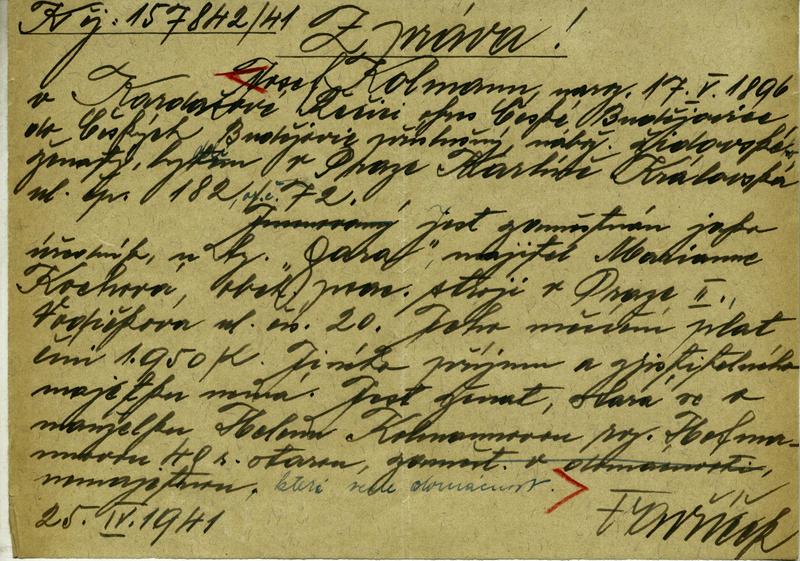 K čj: 157842/41
Zpráva!
Josef Kolmann, narz. 17. V. 1896
v Kardašově Řečici okres České Budějovice,
do Českých Budějovic příslušný, nábož. židovské,
ženatý, bytem v Praze Karlíně Královská
ul. čp. 182, or.č. 72.
Jmenovaný jest zaměstnán jako
úředník, u fy. „Zara", majitel Marianne
Kochová, obch. prac. stroji v Praze II.,
Vodičkova ul. čís. 20. Jeho měsíční plat
činí 1.950 K. Jiného příjmu a zjistitelného
majetku nemá. Jest ženat, stará se o
manželku Helenu Kolmannovou roz. Hofma-
nnovou 48 r. starou, zaměst. v domácnosti,
nemajetnou, která vede domácnost.
25. IV. 1941